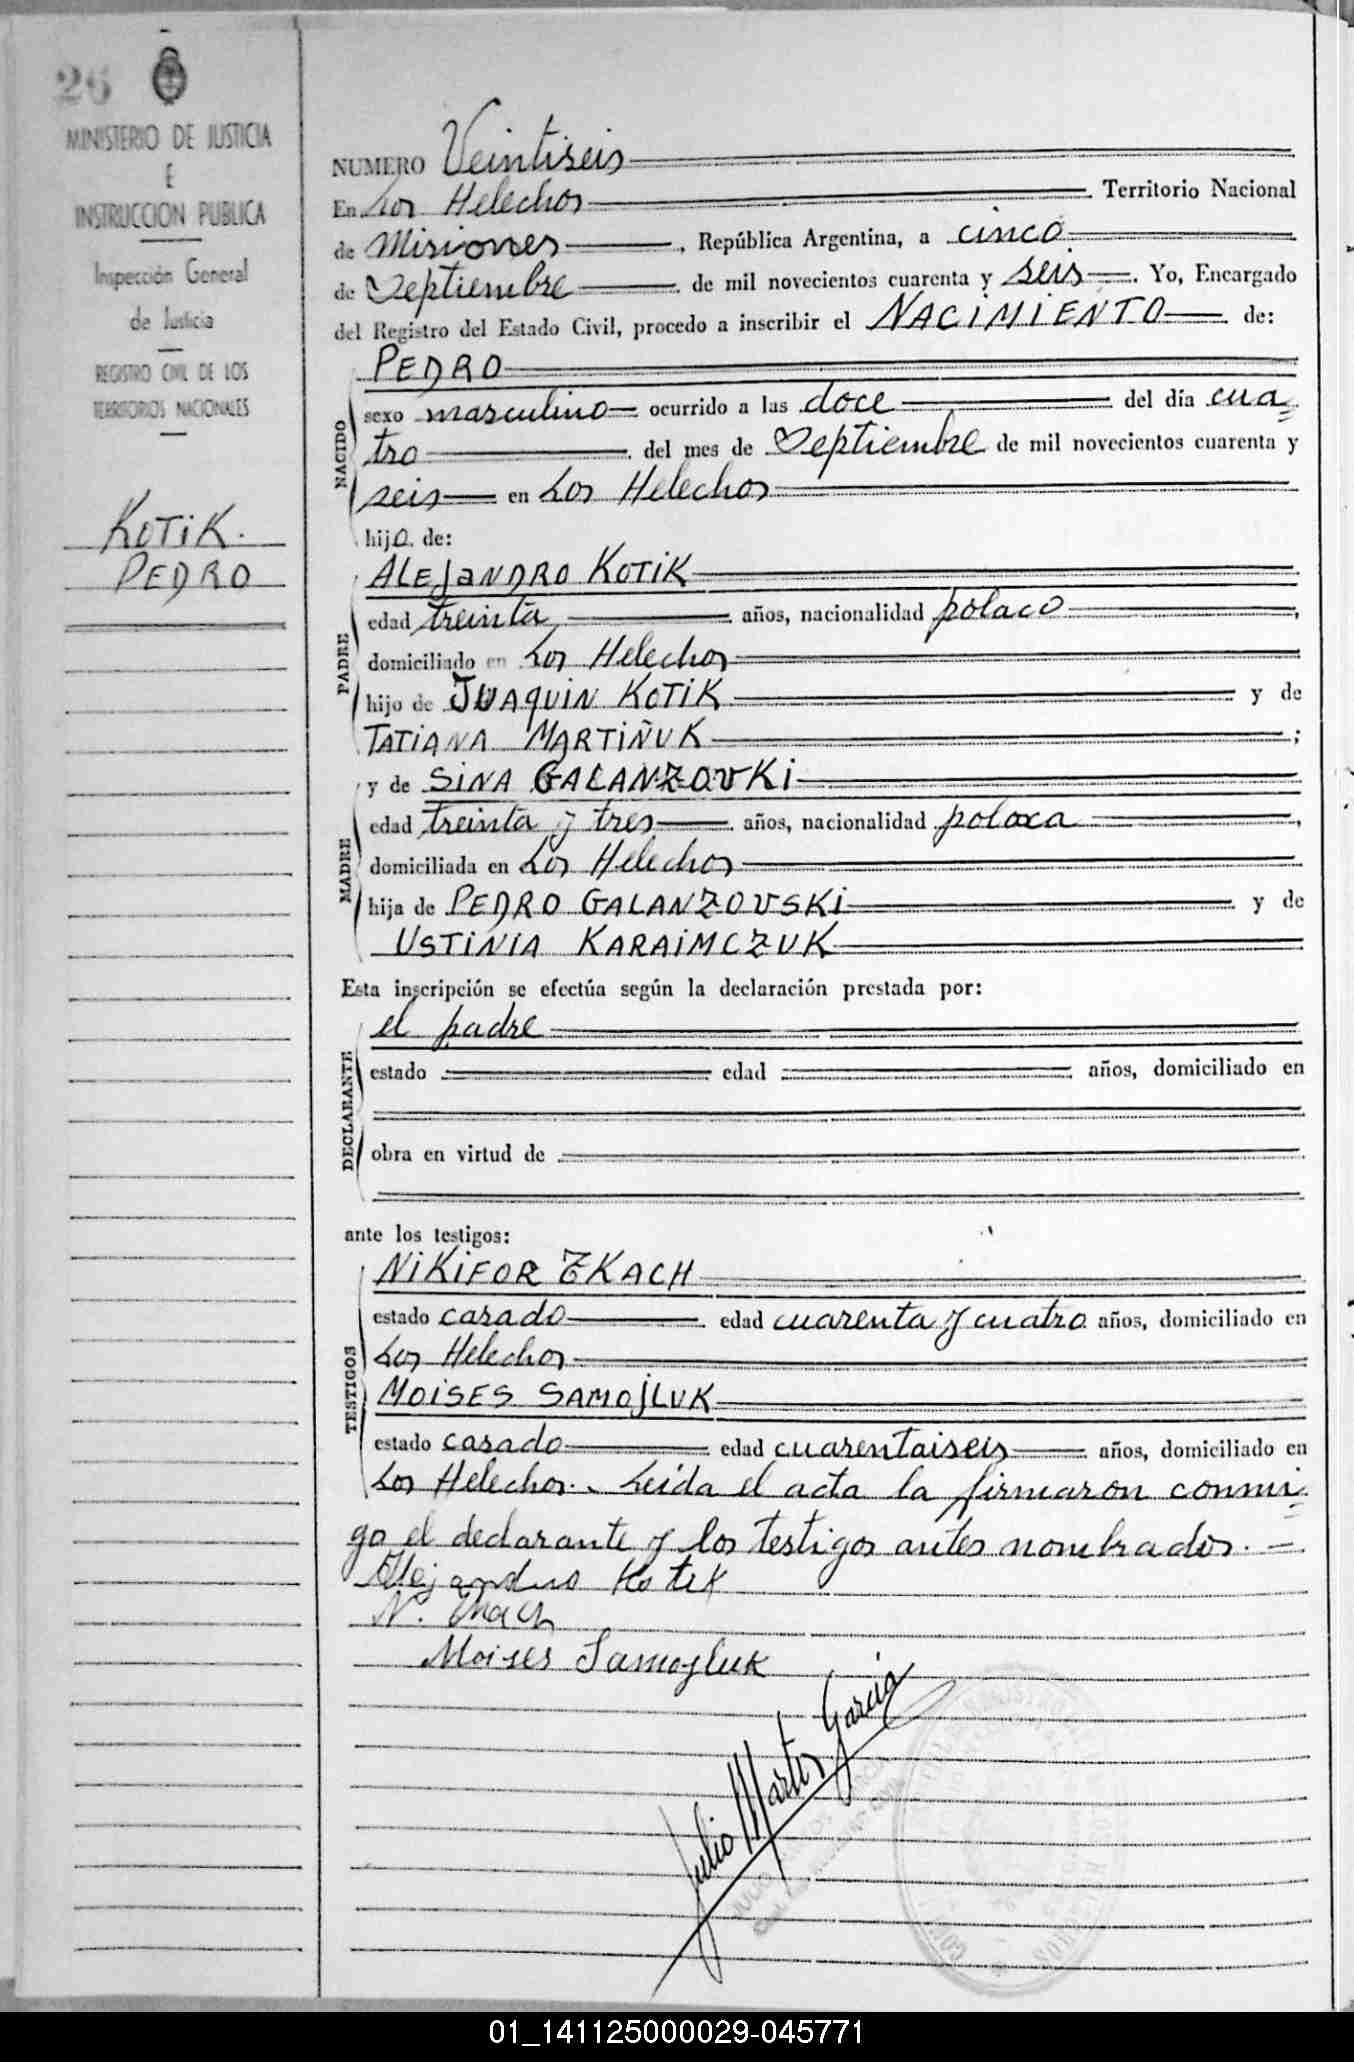 26
MINISTERIO DE JUSTICIA
E
INSTRUCCION PUBLICA
Inspección General
de Justicia
REGISTRO CIVIL DE LOS
TERRITORIOS NACIONALES
KOTIK.
PEDRO
NUMERO Veintiseis
En Los Helechos Territorio Nacional
de Misiones, República Argentina, a cinco
de Septiembre de mil novecientos cuarenta y seis. Yo, Encargado
del Registro del Estado Civil, procedo a inscribir el NACIMIENTO de:
NACIDO
PEDRO
sexo masculino ocurrido a las doce del día cua-
tro del mes de Septiembre de mil novecientos cuarenta y
seis en Los Helechos
hijo de:
PADRE
ALEJANDRO KOTIK
edad treinta años, nacionalidad polaco,
domiciliado en Los Helechos
hijo de JUAQUIN KOTIK y de
TATIANA MARTIÑUK;
MADRE
y de SINA GALANZOVKI
edad treinta y tres años, nacionalidad polaca,
domiciliada en Los Helechos
hija de PEDRO GALANZOVSKI y de
USTINIA KARAIMCZUK
Esta inscripción se efectúa según la declaración prestada por:
DECLARANTE
el padre
estado edad años, domiciliado en
obra en virtud de
ante los testigos:
TESTIGOS
NIKIFOR TKACH
estado casado edad cuarenta y cuatro años, domiciliado en
Los Helechos
MOISES SAMOJLUK
estado casado edad cuarentaiseis años, domiciliado en
Los Helechos. Leída el acta la firmaron conmi-
go el declarante y los testigos antes nombrados.
Alejandro Kotik
N. Tkach
Moises Samojluk
Julio Martos Garcia
01_141125000029-045771